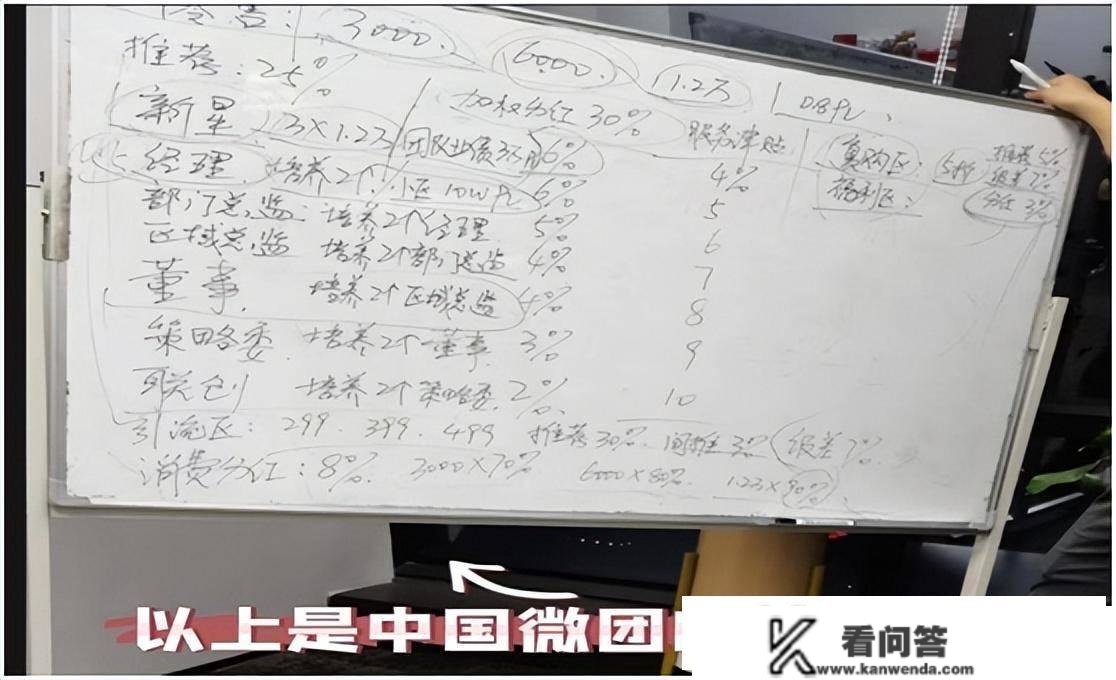 3000. 6000. 1.2万
推荐: 25%
加权分红 30% 服务津贴 0.8PV、
新星 3×1.2万 团队业绩 6% 4%
复购区: 5折 推荐5%
级差7%
分红3%
福利区:
经理 培养2个 小区10W PV 6% 5
部门总监: 培养2个经理 5% 6
区域总监 培养2个部门总监 4% 7
董事. 培养2个区域总监 4% 8
策略委. 培养2个董事 3% 9
联创 培养2个策略委. 2% 10
引流区: 299. 399. 499 推荐30%. 间推3% 级差7%
消费分红: 8%. 3000×70% 6000×80%. 1.2万×90%、
以上是中国微团
看问答
www.kanwenda.com